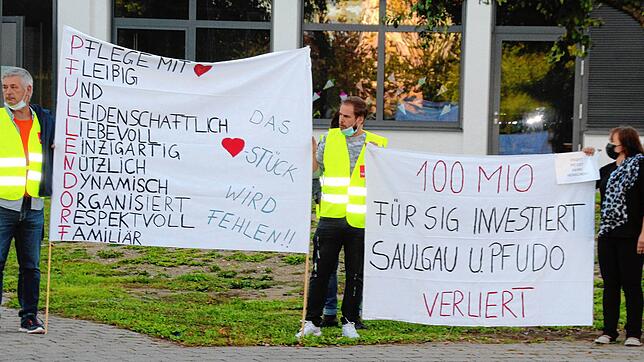 PFLEGE MIT ♥
FLEIBIG
UND
LEIDENSCHAFTLICH
LIEBEVOLL
EINZIGARTIG
NÜTZLICH
DYNAMISCH
ORGANISIERT
RESPEKTVOLL
FAMILIÄR
DAS
STÜCK
WIRD
FEHLEN!!
100 MIO
FÜR SIG INVESTIERT
SAULGAU U. PFUDO
VERLIERT